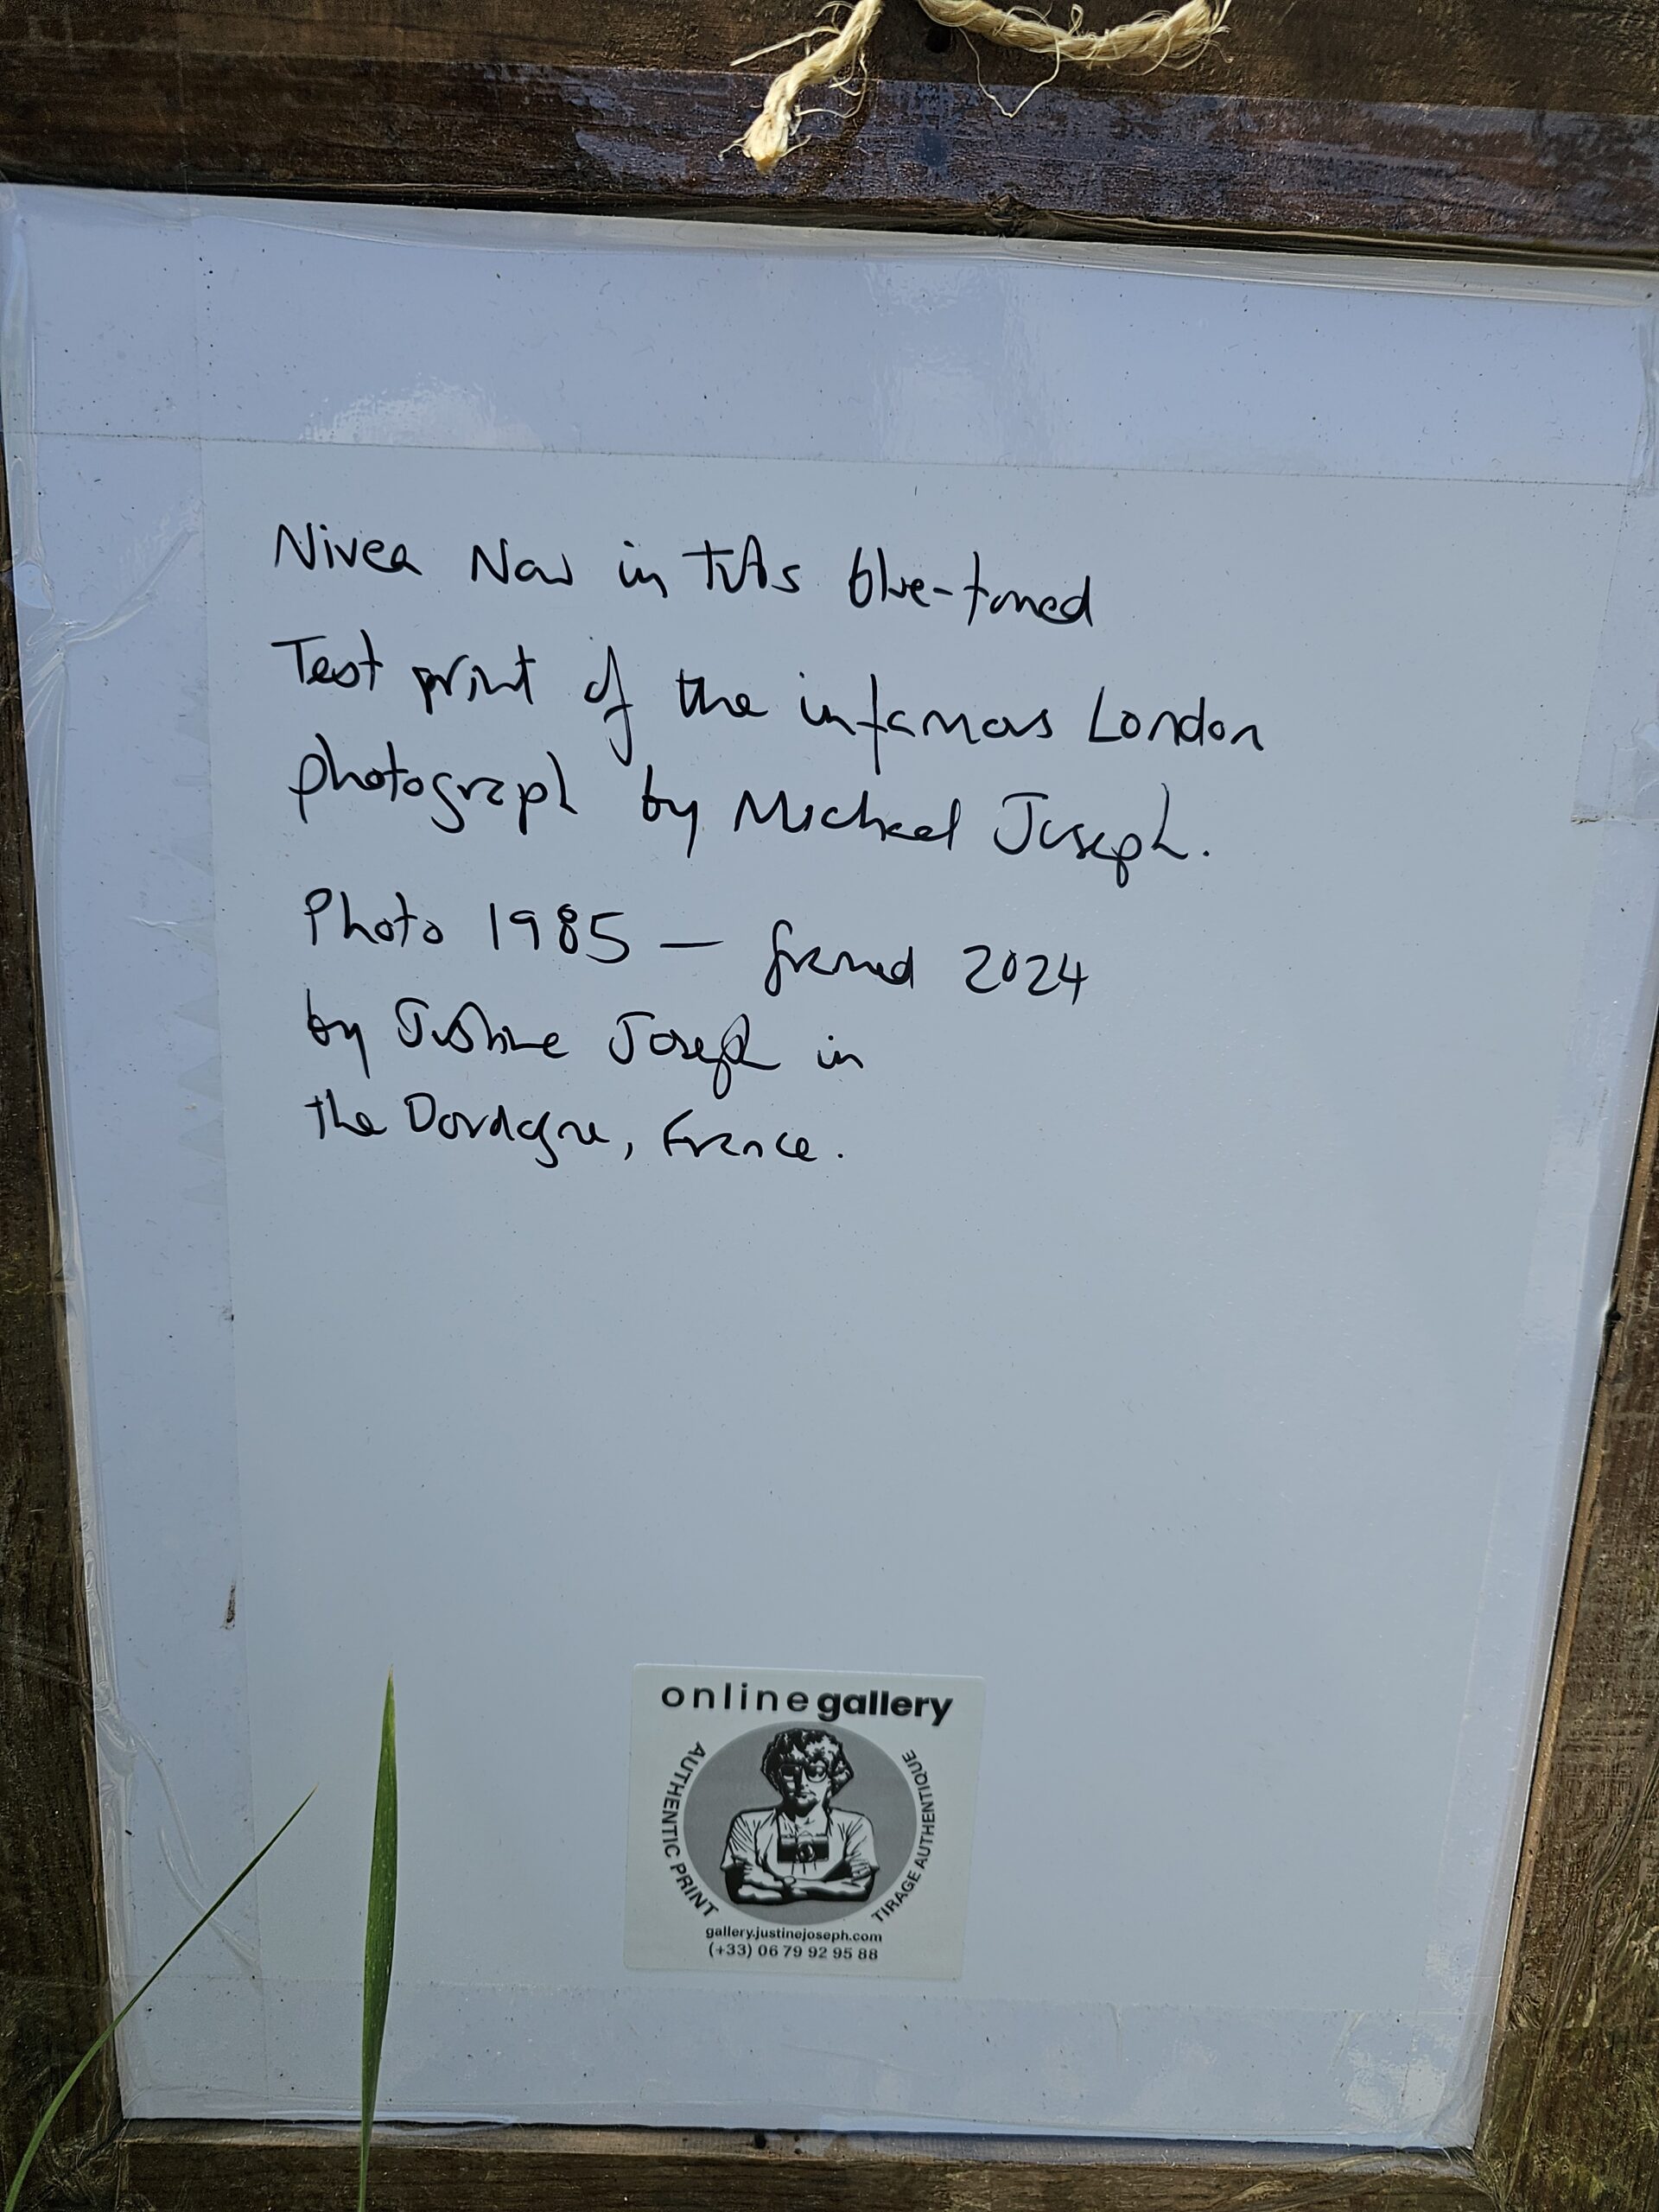 Nivea Now in this blue-toned
Test print of the infamous London
photograph by Michael Joseph.
Photo 1985 — framed 2024
by Justine Joseph in
the Dordogne, France.
onlinegallery
AUTHENTIC PRINT
TIRAGE AUTHENTIQUE
gallery.justinejoseph.com
(+33) 06 79 92 95 88